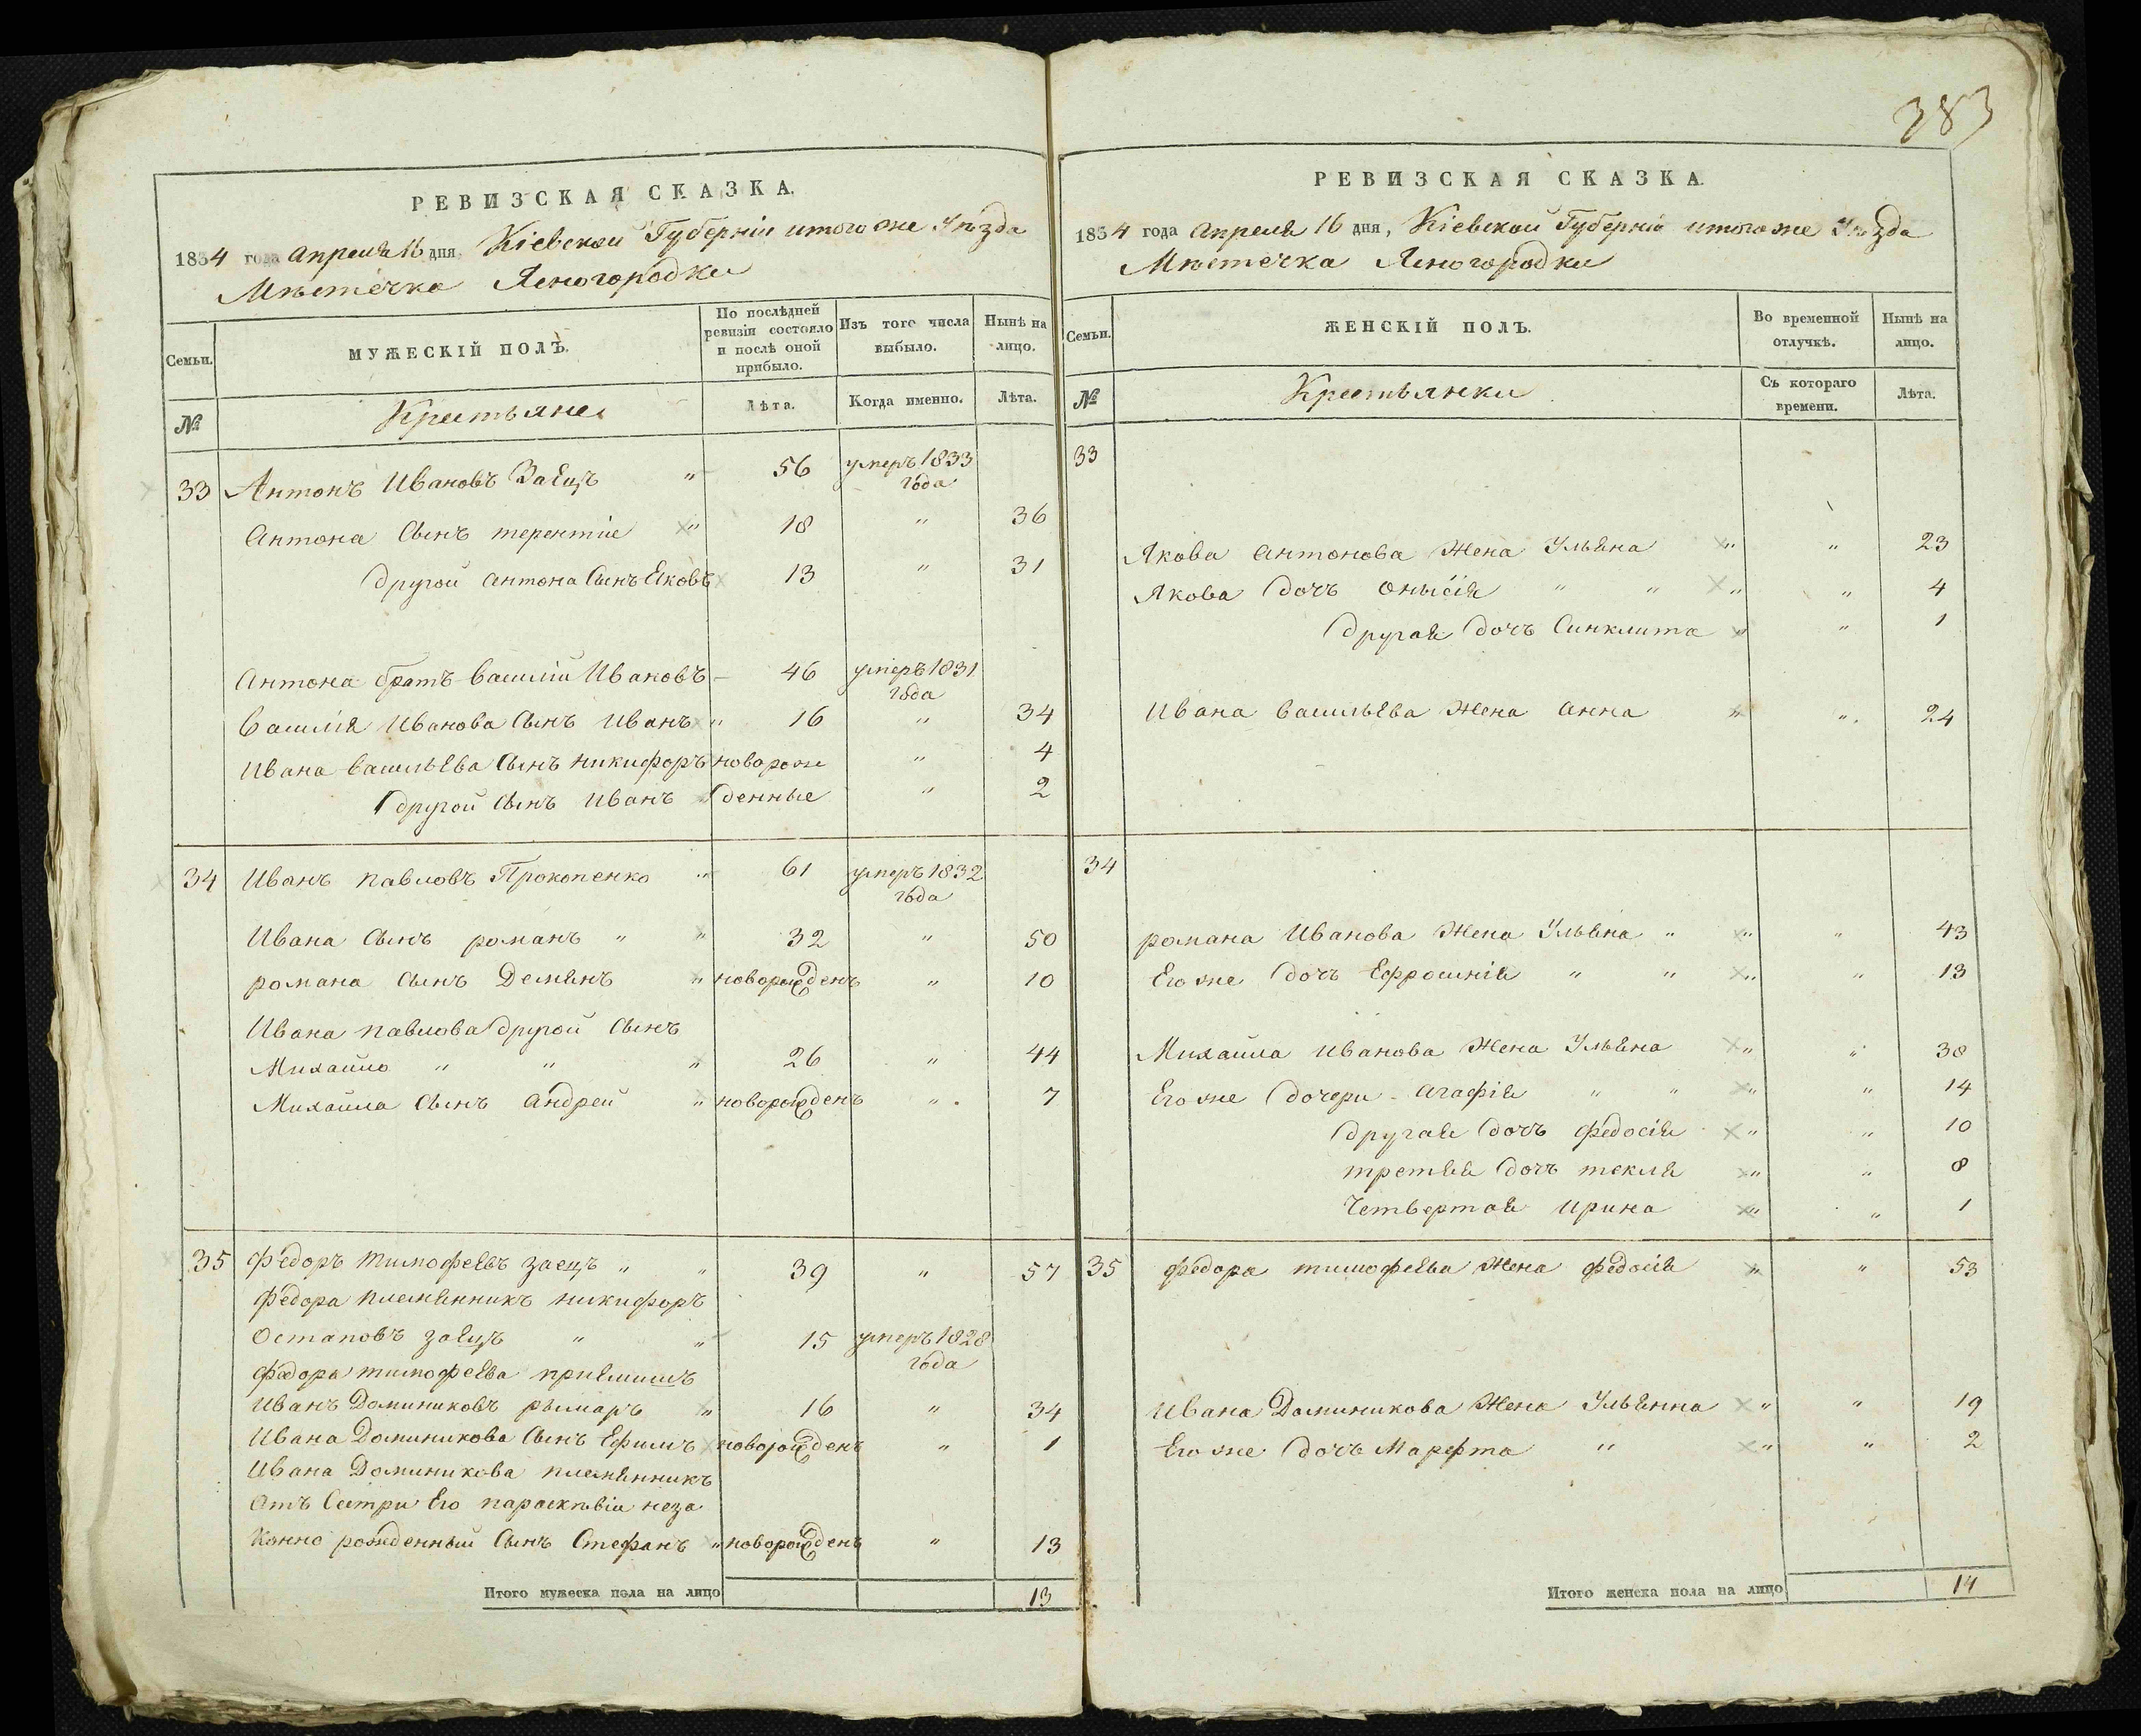 383
РЕВИЗСКАЯ СКАЗКА.
1834 года апреля 16 дня, Кіевской Губерніи итогоже Уѣзда
Мѣстечка Ясногородки
Семьи.
МУЖЕСКІЙ ПОЛЪ.
По послѣдней ревизіи состояло и послѣ оной прибыло.
Изъ того числа выбыло.
Нынѣ на лицо.
№
Крестьяне
Лѣта.
Когда именно.
Лѣта.
33 Антонъ Ивановъ Заецъ " 56 умеръ 1833 года
Антона Сынъ терентіе " 18 " 36
другой Антона Сынъ Яковъ 13 " 31
Антона братъ Василій Ивановъ - 46 умеръ 1831 года
Василія Иванова Сынъ Иванъ " 16 " 34
Ивана Васильева Сынъ никифоръ новорож " 4
другой Сынъ Иванъ денные " 2
34 Иванъ павловъ Прокопенко " 61 умеръ 1832 года
Ивана Сынъ романъ " " 32 " 50
романа Сынъ Демянъ " новорожденъ " 10
Ивана павлова другой Сынъ
Михайло " " " 26 " 44
Михайла Сынъ андрей " новорожденъ " 7
35 Федоръ тимофеевъ заецъ " " 39 " 57
Федора племянникъ никифоръ
Остаповъ заецъ " " 15 умеръ 1828 года
Федора тимофеева приемишъ
Иванъ Доминиковъ рымаръ " 16 " 34
Ивана Доминикова Сынъ Ефимъ новорожденъ " 1
Ивана Доминикова племянникъ
отъ Сестри Его параскѣвіи неза
конно рожденный Сынъ Стефанъ " новорожденъ " 13
Итого мужеска пола на лицо 13
РЕВИЗСКАЯ СКАЗКА.
1834 года апреля 16 дня, Кіевской Губерніи итогоже Уѣзда
Мѣстечка Ясногородки
Семьи.
ЖЕНСКІЙ ПОЛЪ.
Во временной отлучкѣ.
Нынѣ на лицо.
№
Крестьянки
Съ котораго времени.
Лѣта.
33
Якова Антонова Жена Ульяна " " 23
Якова дочъ Онысія " " " " 4
другая дочъ Синклита " " 1
Ивана Васильева Жена анна " " 24
34
романа Иванова Жена Ульяна " " " 43
Его же дочъ Ефросинія " " " " 13
Михайла Иванова Жена Ульяна " " 38
Его же дочери - агафія " " " " 14
другая дочъ федосія " " 10
третья дочъ текля " " 8
Четвертая ирина " " 1
35 федора тимофеева Жена федосія " " 53
Ивана Доминикова Жена Ульянна " " 19
Его же дочъ Марфта " " " 2
Итого женска пола на лицо 14